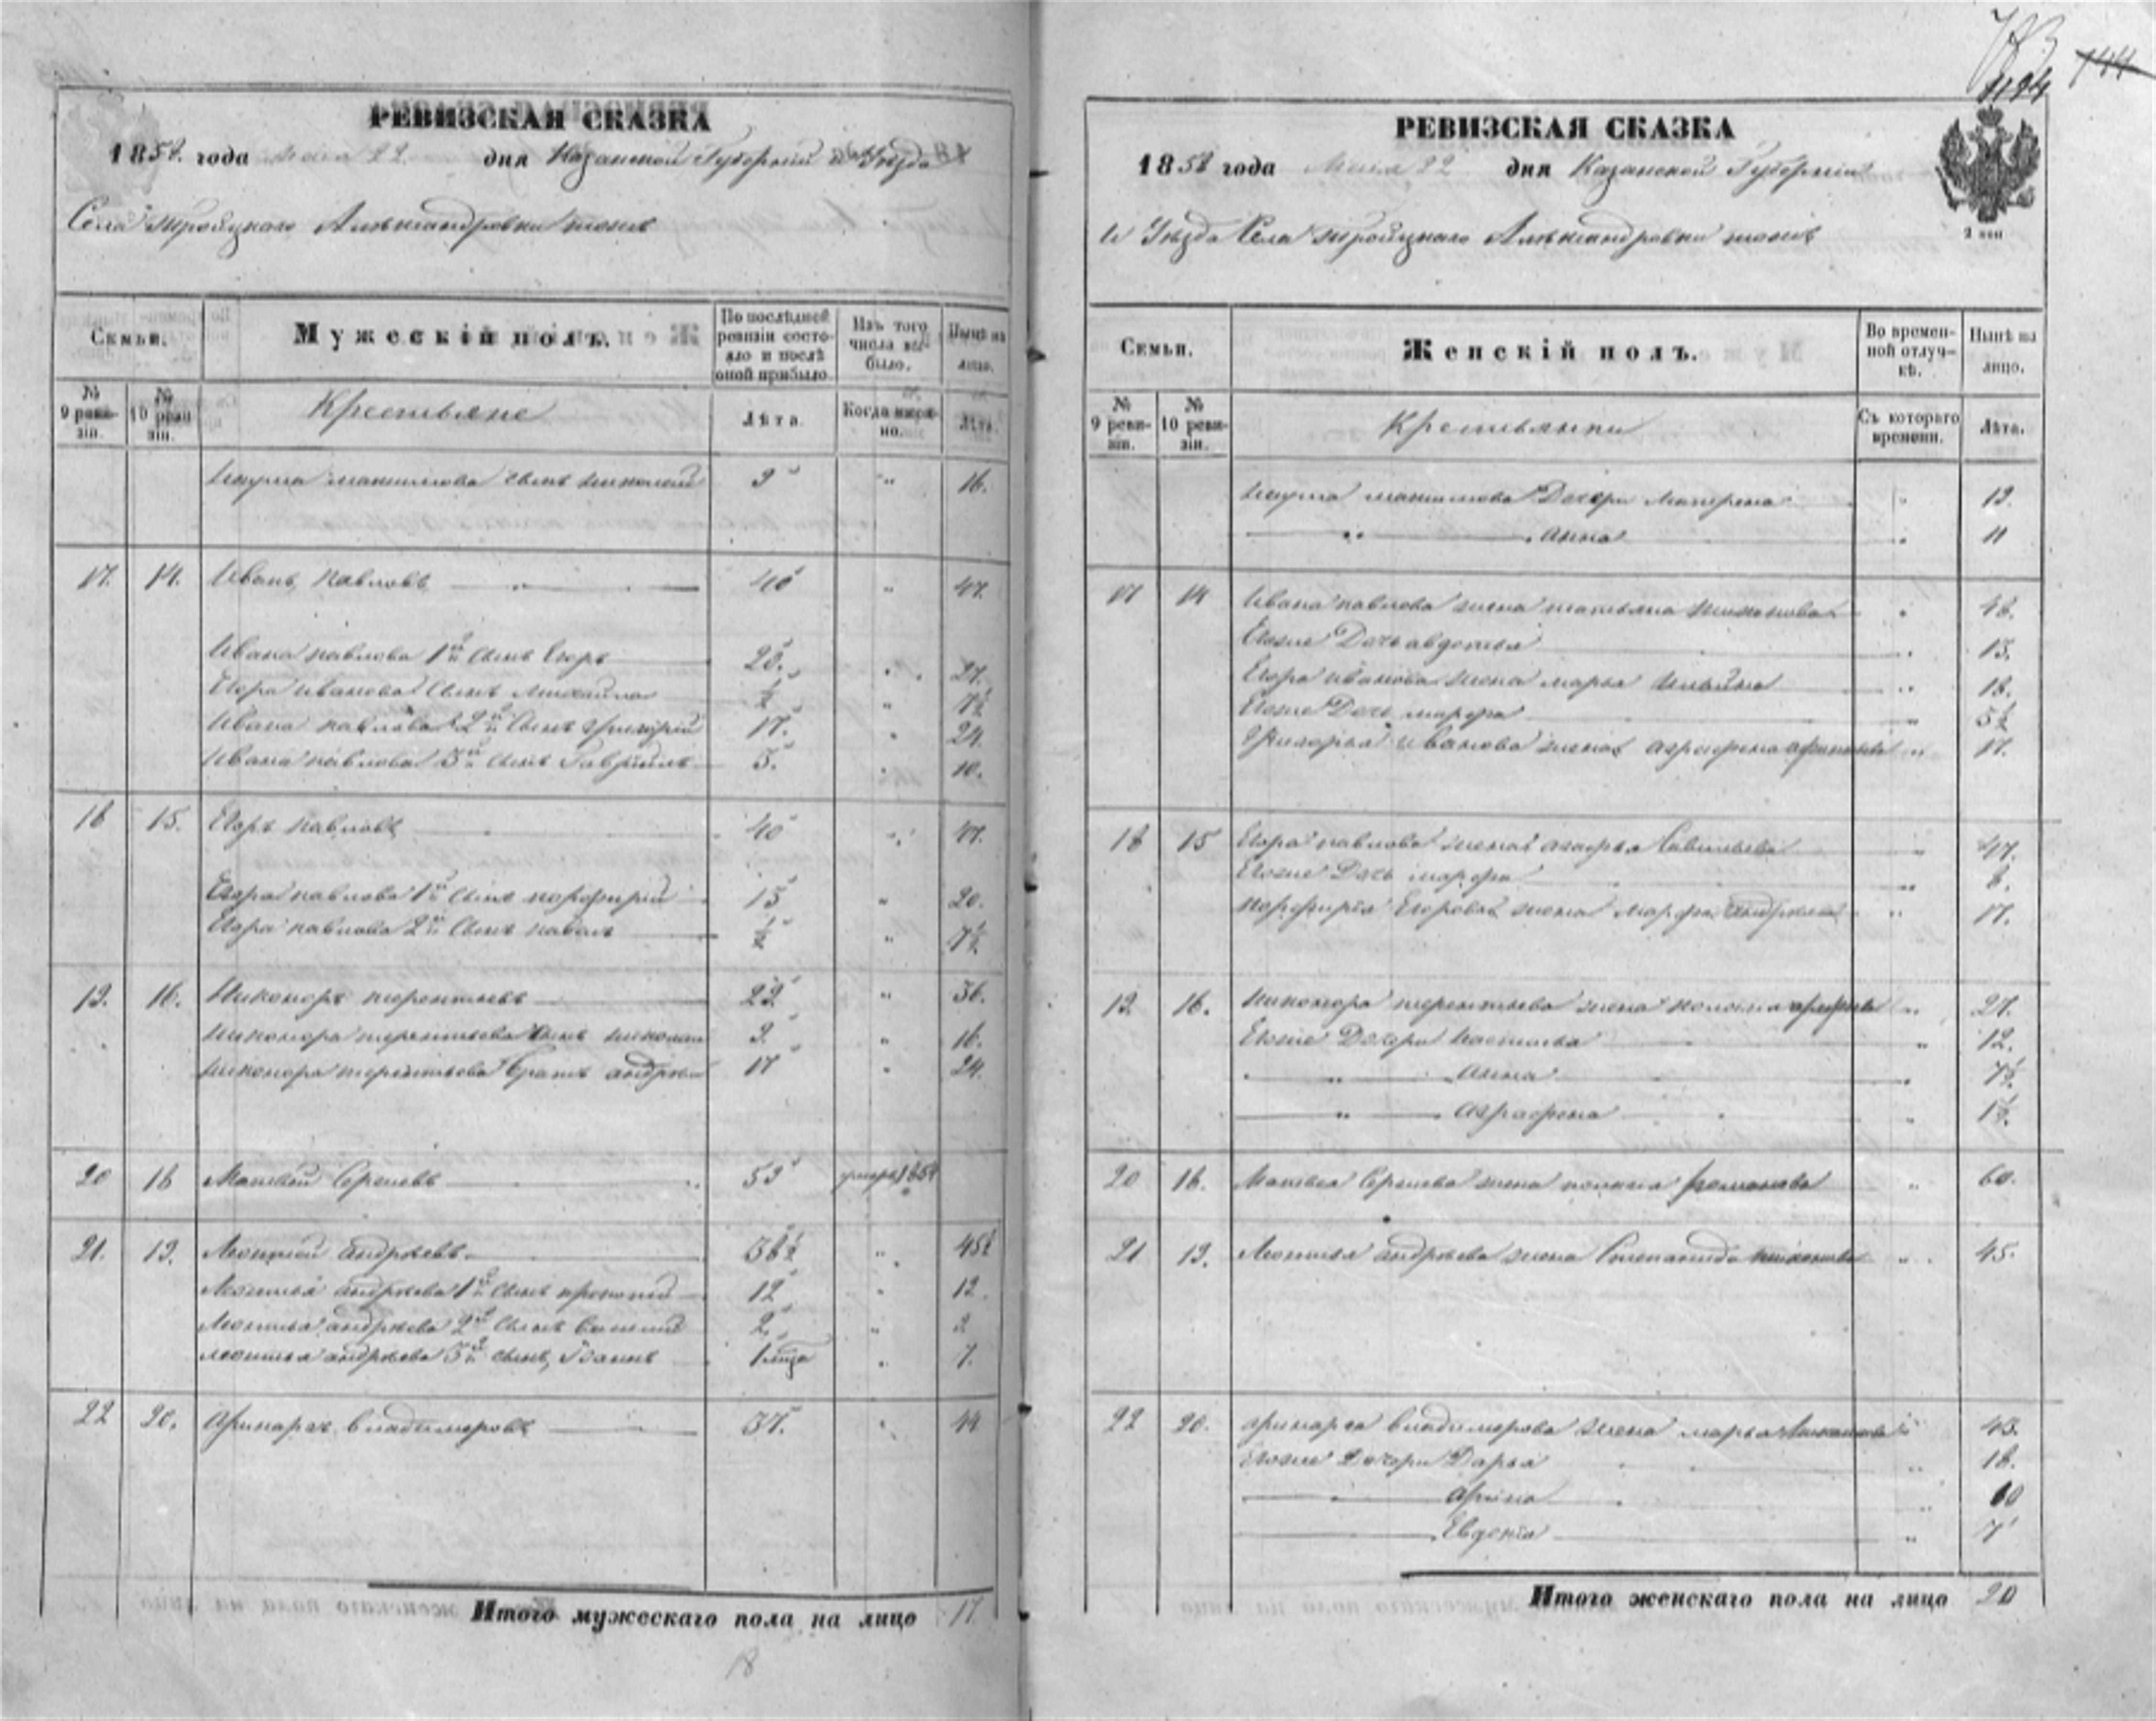 РЕВИЗСКАЯ СКАЗКА
1858 года Маія 22 дня Казанской Губерніи и Уѣзда
Села Троицкаго Александровки тожъ
Семьи.
Мужескій полъ.
По послѣдней ревизіи состояло и послѣ оной прибыло.
Изъ того числа выбыло.
Нынѣ на лицо.
№ 9 ревизіи.
№ 10 ревизіи.
Крестьяне
Лѣта.
Когда именно.
Лѣта.
сынъ Николай 9 " 16.
17. 14. Иванъ Павловъ 40 " 47.
Ивана Павлова 1й сынъ Егоръ 20. " 27.
Егора Иванова сынъ Михайла ½ " 7½
Ивана Павлова 2й сынъ Григорій 17. " 24.
Ивана Павлова 3й сынъ Гаврiилъ 3. " 10.
18 15. Егоръ Павловъ 40 " 47.
Егора Павлова 1й сынъ Порфирій 13 " 20.
Егора Павлова 2й сынъ Павелъ ½ " 7½
19. 16. Никоноръ Терентьевъ 29 " 36.
Никонора Терентьева сынъ Николай 9. " 16.
Никонора Терентьева братъ Андрей 17 " 24.
20 18 Матвей Сергеевъ 53 умеръ
21. 19. Леонтій Андрѣевъ 38½ " 45½
Леонтья Андрѣева 1й сынъ Прокопій 12 " 19.
Леонтья Андрѣева 2й сынъ Василій 2. " 9
Леонтья Андрѣева 3й сынъ 1 " 7.
22 20. Владимеровъ 37. " 44
Итого мужескаго пола на лицо 17.
18
144
РЕВИЗСКАЯ СКАЗКА
1858 года Маія 22 дня Казанской Губерніи
и Уѣзда Села Троицкаго Александровки тожъ
Семьи.
Женскій полъ.
Во временной отлучкѣ.
Нынѣ на лицо.
№ 9 ревизіи.
№ 10 ревизіи.
Крестьянки
Съ котораго времени.
Лѣта.
Дочери Матрена " 19.
" Анна " 11
17 14 Ивана Павлова жена Татьяна " 48.
Егоже Дочь Авдотья " 13.
Егора Иванова жена Марья Ильина " 18.
Егоже Дочь Марфа " 5½
Григорья Иванова жена Аграфена " 17.
18 15 Егора Павлова жена Агафья Савельева " 47.
Егоже Дочь Марфа " 8.
Порфирія Егорова жена Марфа Андрѣева " 17.
19. 16. Никонора Терентьева жена " 27.
Егоже Дочери Настасья " 12.
" Анна " 7½.
" Аграфена " 1½.
20 18. Матвея Сергеева жена " 60.
21 19. Леонтья Андрѣева жена Степанида " 45.
22 20. Владимерова жена Марья " 43.
Егоже Дочери Дарья " 18.
Арина " 10
Евдокіа " 7
Итого женскаго пола на лицо 20